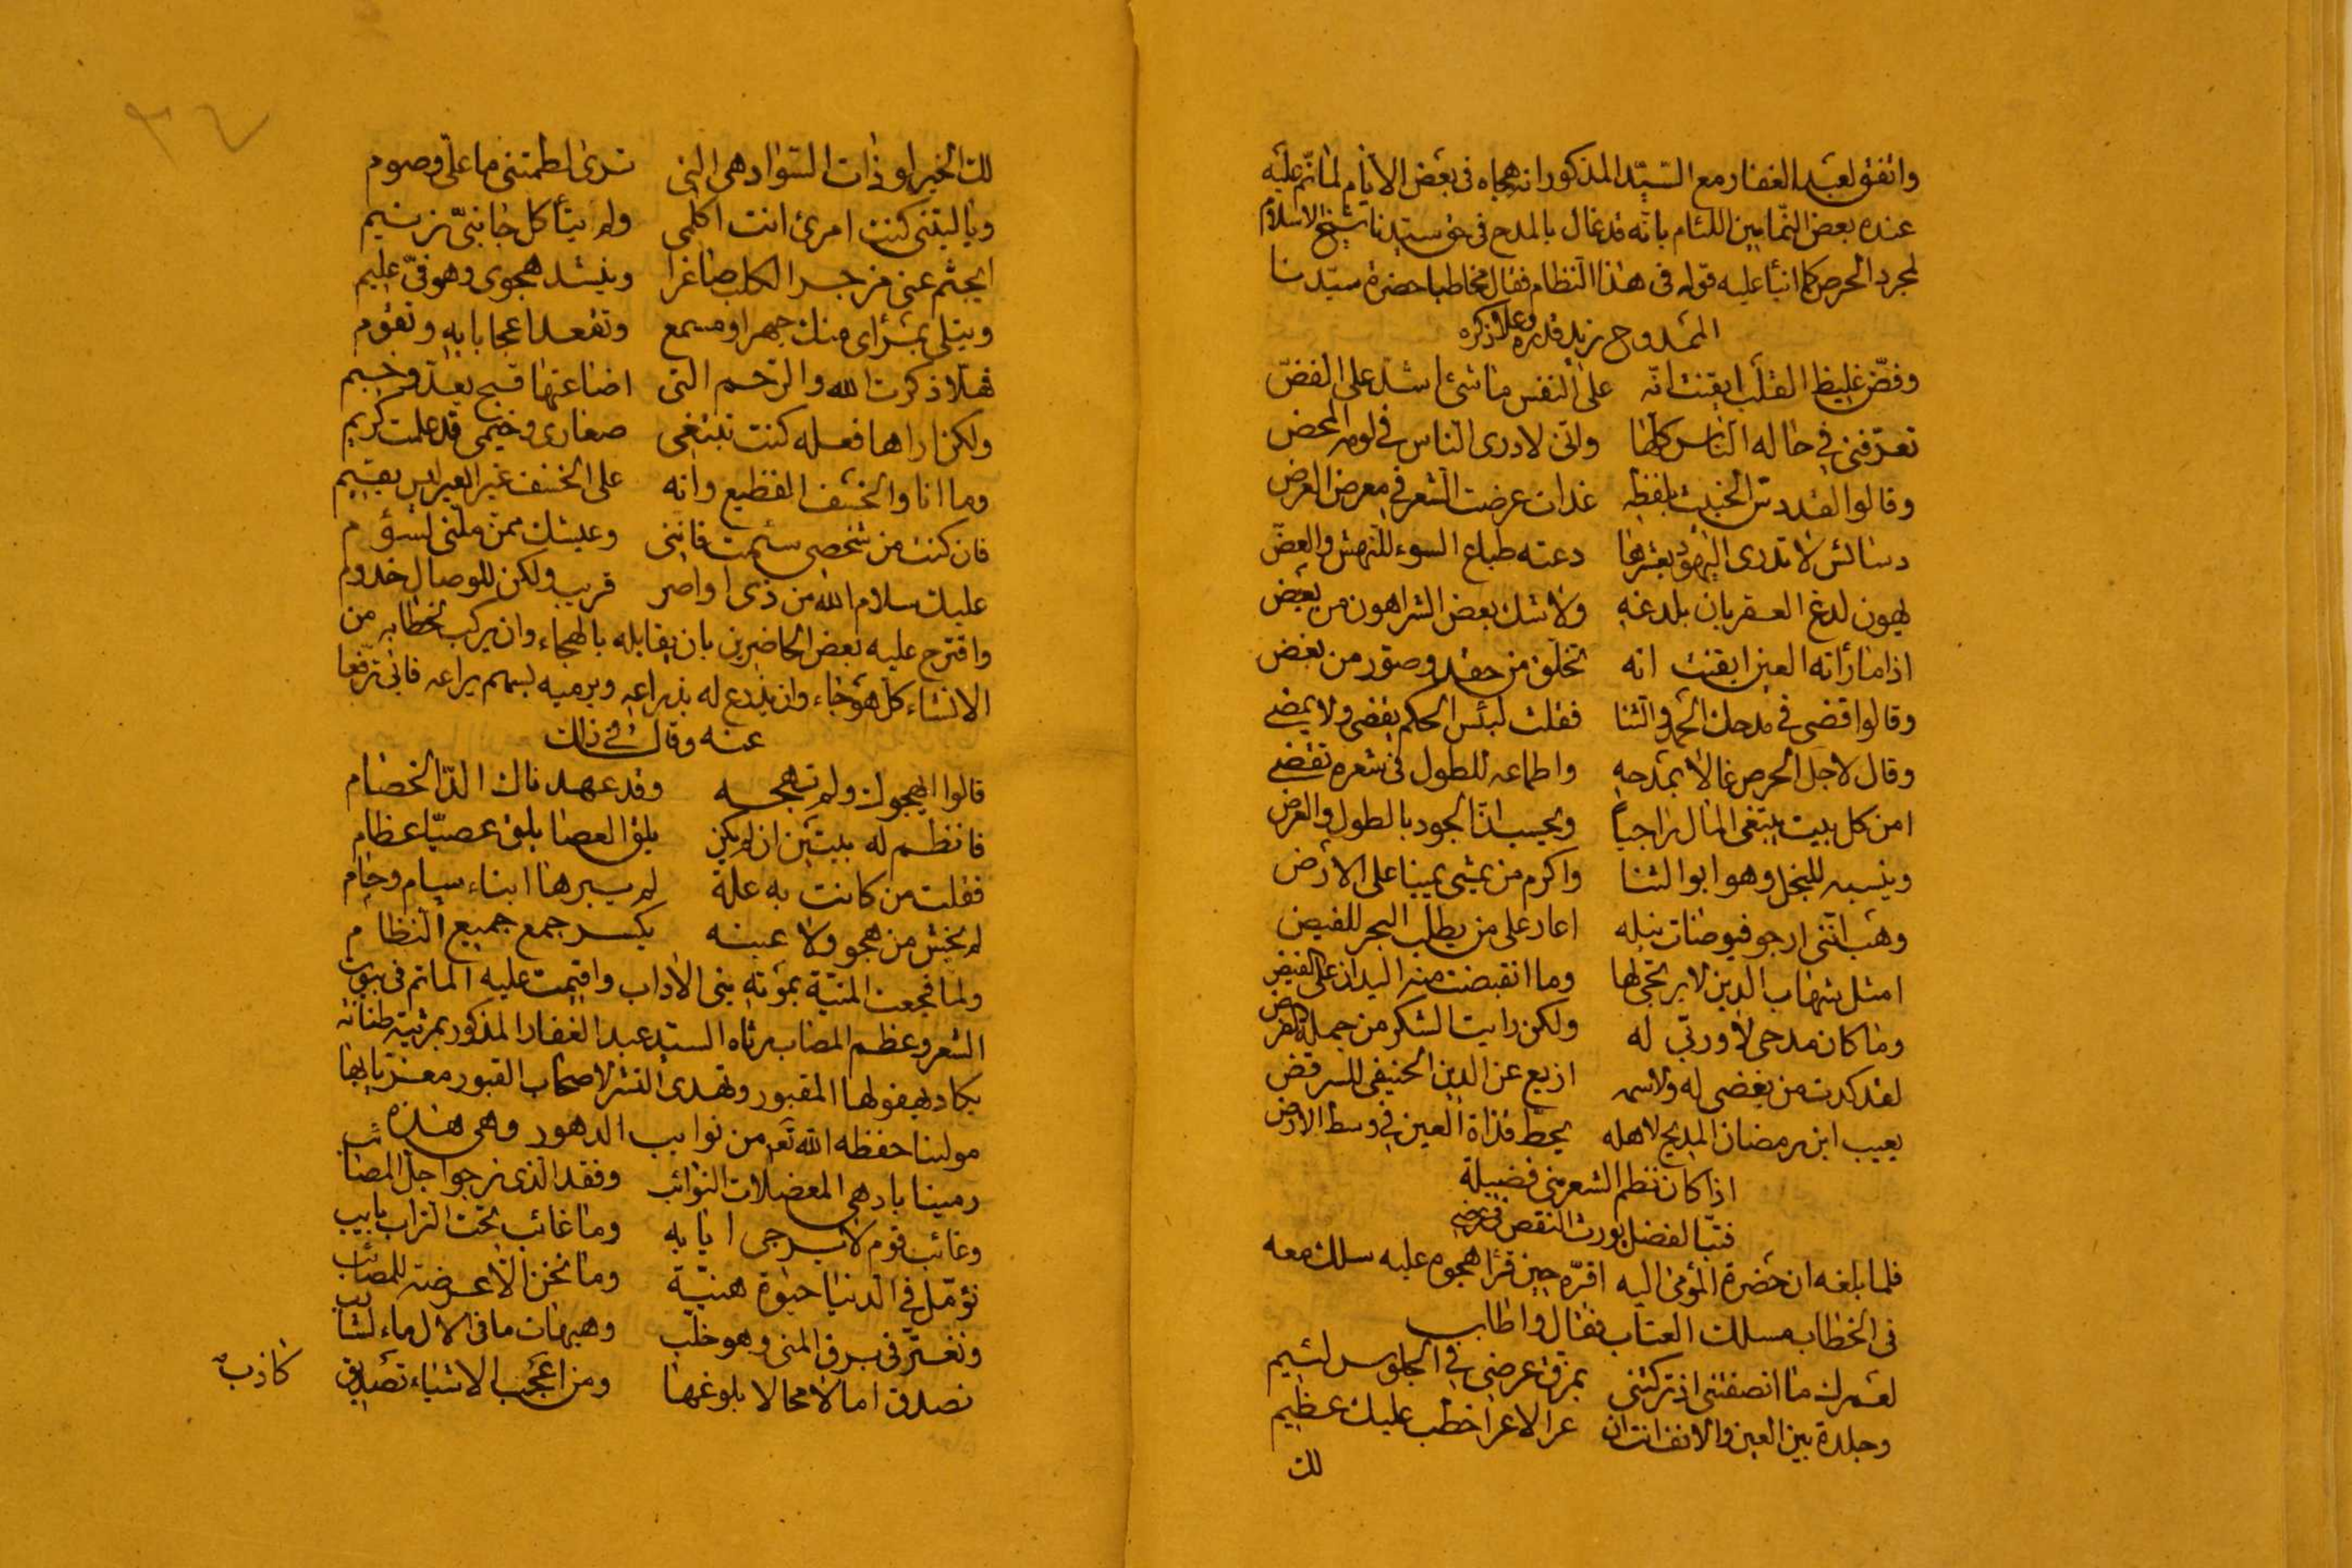 واتفق لعبد الغفار مع السيد المذكور انه هجاه في بعض الايام لما نم عليه
عنده بعض النمامين اللئام بانه قد غال بالمدح في حق سيدنا شيخ الاسلام
لمجرد الحرص كما انبأ عليه قوله في هذا النظام فقال مخاطبا حضرة سيدنا
الممدوح زيد قدره وعلا ذكره
وفض غليظ القلب ايقنت انه على النفس ما شئ اشد على الفض
تعرفني في حاله الناس كلها واني لادرى الناس في لومه المحض
وقالوا لقد دس الخبيث بلفظه غداة عرضت الشعر في معرض العرض
دسائس لا تدرى اليهود بعشرها دعته طباع السوء للنهش والعض
يهون لدغ العقربان بلدغه ولا شك بعض الشر اهون من بعض
اذا ما رأته العين ايقنت انه تخلق من حقد وصور من بغض
وقالوا قضى في مدحك الحمد والثنا فقلت لبئس الحكم يقضى ولا يمضي
وقال لاجل الحرص غالا بمدحه واطماعه للطول في شعره تقضي
امن كل بيت يبتغى المال راجياً ويحسب ان الجود بالطول والعرض
وينسبه للبخل وهو ابو الثنا واكرم من يمشي يمينا على الارض
وهب انني ارجو فيوضات نيله اعار على من يطلب البحر للفيض
امثل شهاب الدين لا يرتجى لها وما انقبضت منه اليدان على القبض
وما كان مدحى لا وربي له ولكن رايت الشكر من جملة الفرض
لقد كدت من بغضى له ولاسمه ازيع عن الدين الحنيفي للرفض
يعيب ابن رمضان المديح لاهله يحط قذاة العين في وسط الارض
اذا كان نظم الشعر مني فضيلة
فتبا لفضل يورث النقص في عرضي
فلما بلغه ان حضرة المؤمى اليه اقره حين قرأ هجوه عليه سلك معه
في الخطاب مسلك العتاب فقال واطاب
لعمرك ما انصفتني اذ تركتني يمزق عرضي في الجلوس لئيم
وجلدة بين العين والانف انت ان عرا لا عرا خطب عليك عظيم
لك
٣٤
لك الخير لو ذات السوار هى التي ترى لطمتني ما علي وصوم
ويا ليتني كنت امرئ انت اكلمى ولم يتأكل جانبي زنيم
ايجثم عني مزجر الكلب صاغرا وينشد هجوى وهو في عليم
ويتلى بمرأى منك جهرا ومسمع وتقعد اعجابا به وتقوم
فهلا ذكرت الله والرحم التي اضاعتها قبح يعد وخيم
ولكن اراها فعله كنت تبتغي صغارى وخيمى قد علمت كريم
وما انا والخسف الفظيع وانه على الخسف غير العير ليس يقيم
فان كنت من شخصي سئمت فانني وعيشك ممن ملني لسؤم
عليك سلام الله من ذى اواصر قريب ولكن للوصال خدوم
واقترح عليه بعض الحاضرين بان يقابله بالهجاء وان يركب بخطابه من
الانشاء كل هوجاء وان يذرع له بذراعه ويرميه بسهم يراعه فابى ترفعا
عنه وقال في ذلك
قالوا ايهجوك ولم تهجه وقد عهدناك الد الخصام
فانظم له بيتين ان لم يكن يلق العصا يلق عصيا عظام
فقلت من كانت به علة لم يبرها ابناء سام وحام
لم يخش من هجو ولا عيبه يكسر جمع جميع النظام
ولما فجعت المنية بموته بني الاداب واقيمت عليه الماتم في بيوت
الشعر وعظم المصاب رثاه السيد عبد الغفار المذكور بمرثية طنانة
يكاد يهفو لها المقبور وتهدى النشر لاصحاب القبور معزيا بها
مولينا حفظه الله تعم من نوايب الدهور وهى هذه
رمينا بادهى المعضلات النوائب وفقد الذى نرجوا جل المصائب
وغائب قوم لا يرجى ايابه وما غائب تحت التراب بايب
نؤمل في الدنيا حيوة هنية وما نحن الا عرضة للمصائب
ونغتر في برق المنى وهو خلب وهيهات ما في الال ماء لشارب
نصدق امالا محالا بلوغها ومن اعجب الاشياء تصديق
كاذب